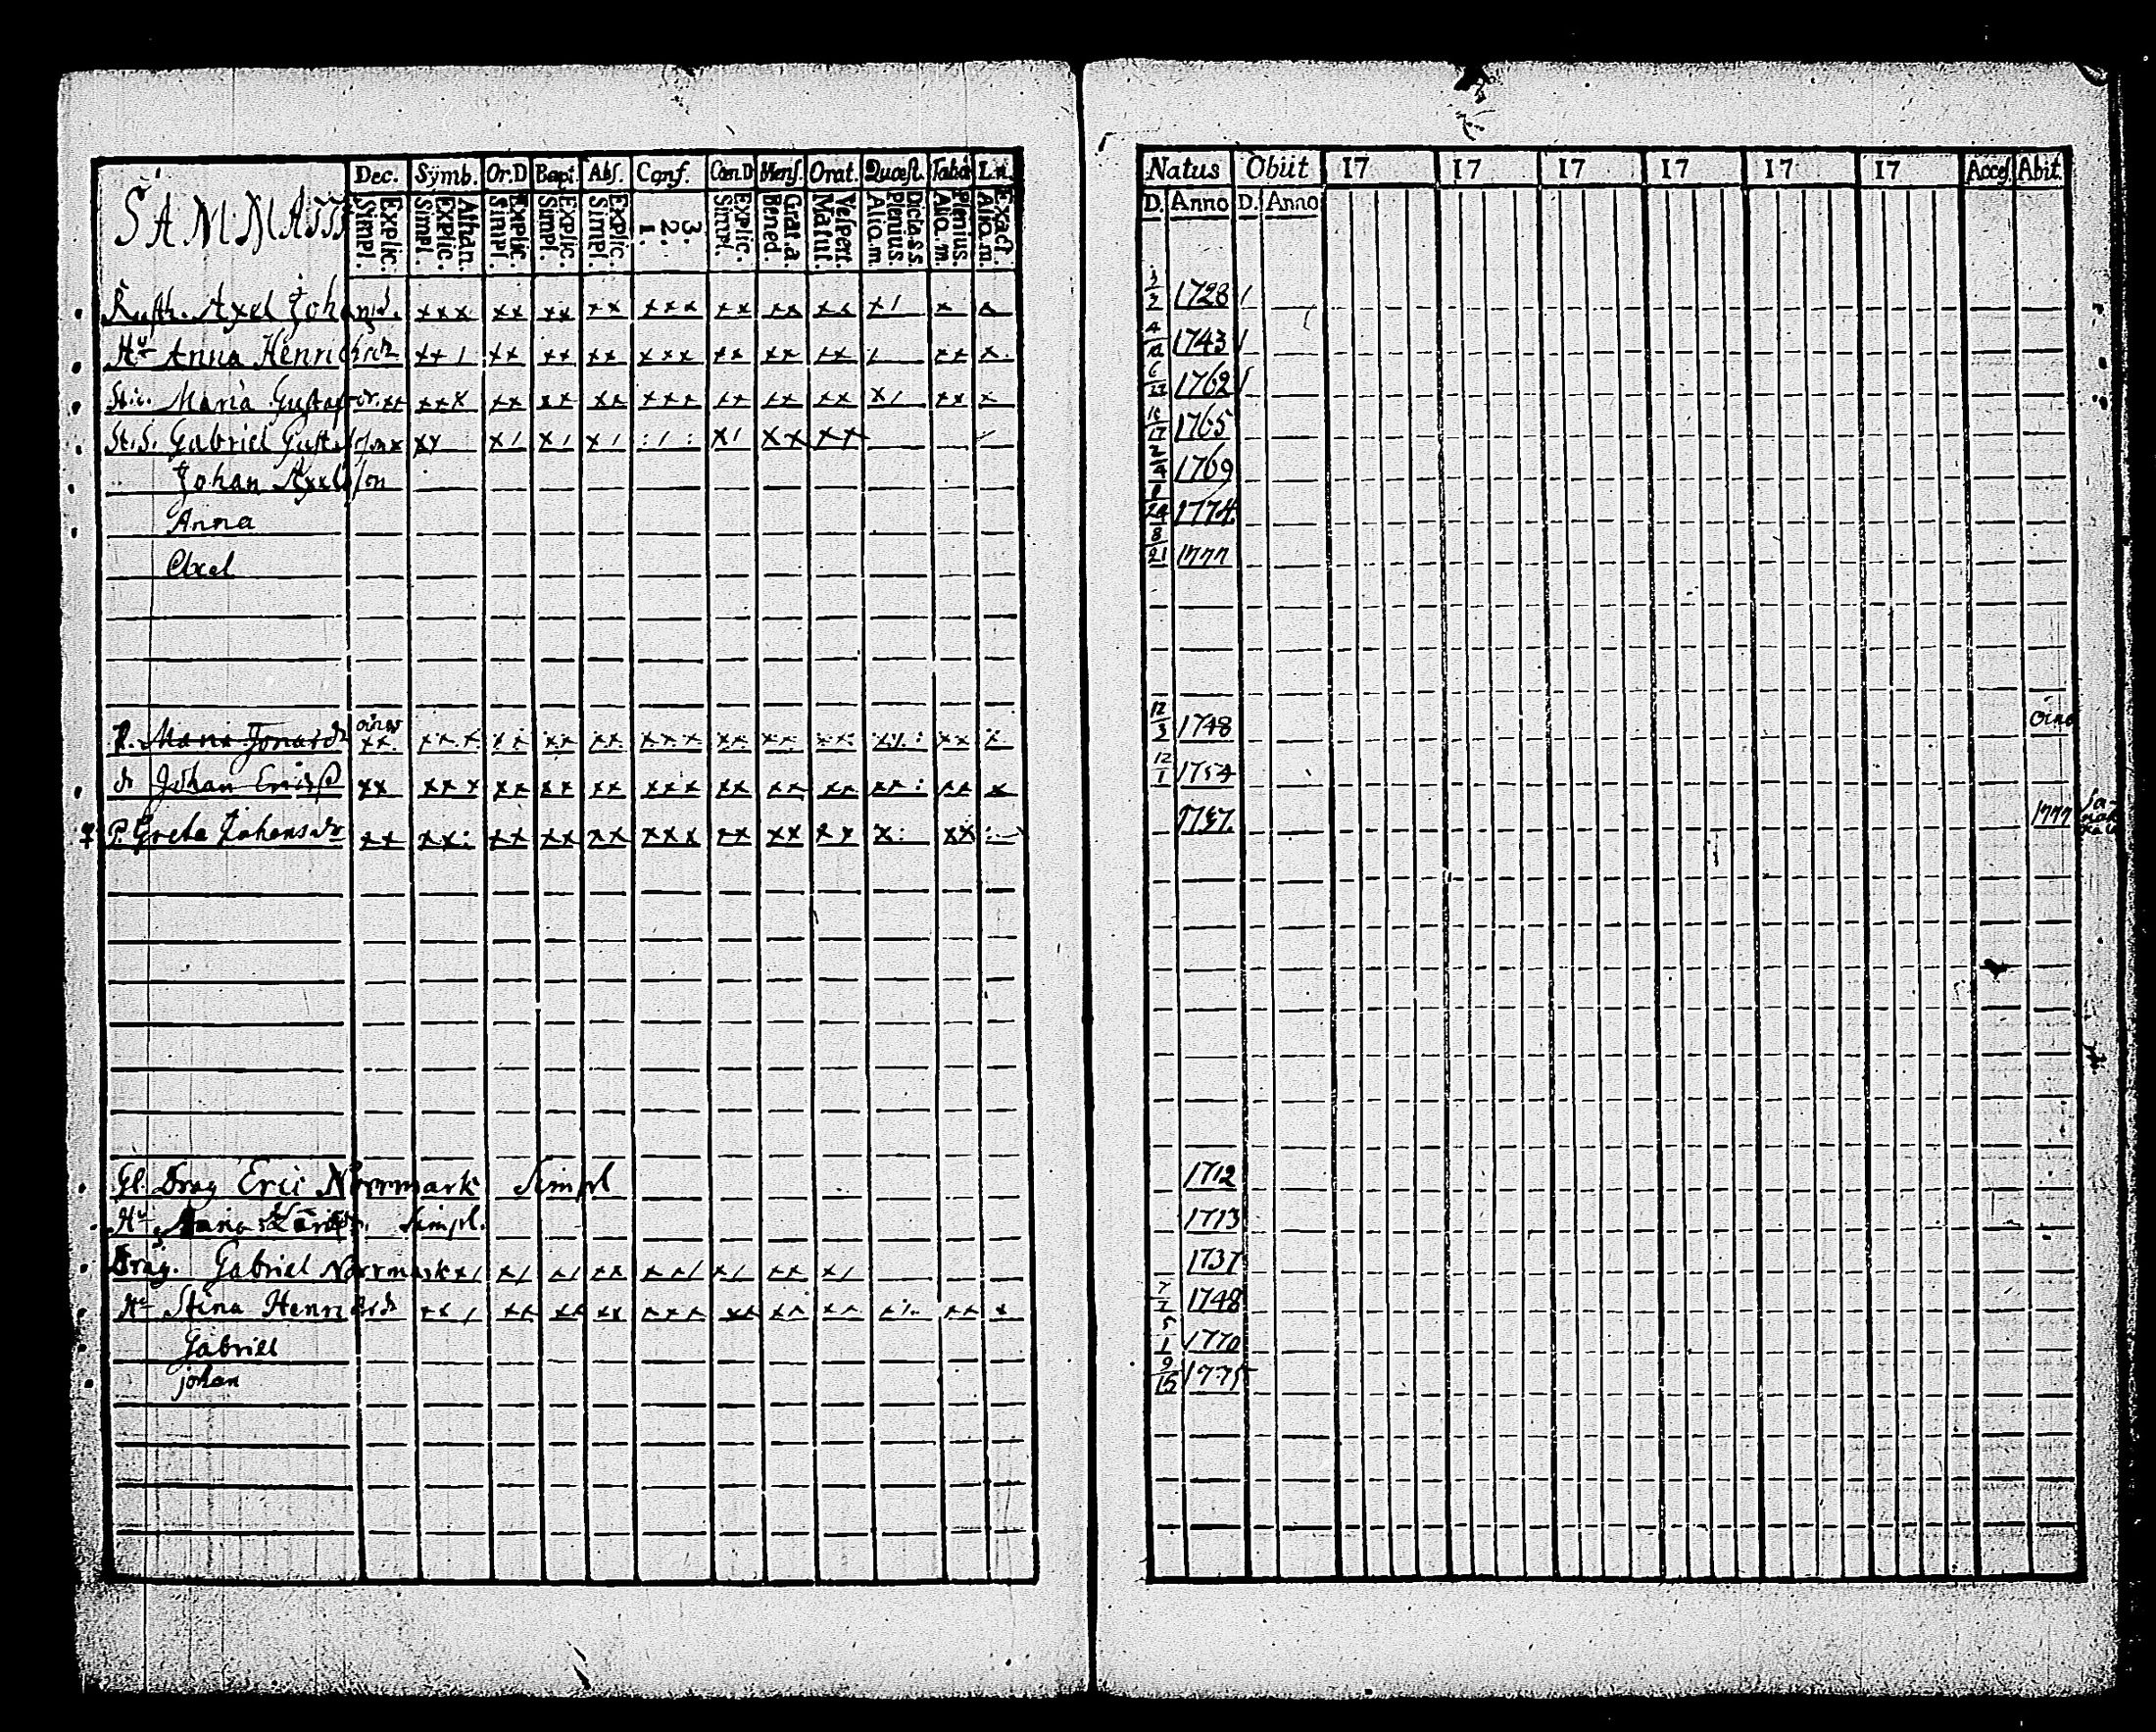 SAMMATTI Dec. Symb. Or.D Bapt. Abs. Conf. Cœn.D Mens. Orat. Quæst. Tabd L.n.
Explic. Simpl. Athan. Explic. Simpl. Explic. Simpl. Explic. Simpl. Explic. Simpl. 3. 2. 1. Explic. Simpl. Grat. a Bened. Vespert. Matut. Dicta s.s. Plenius. Alio.m. Plenius. Alio.m. Exact. Alio.m.
Rusth. Axel Johansd. xxx xx xx xx xxx xx xx xx x/ x x
Hu Anna Henricsdr xx/ xx xx xx xxx xx xx xx / xx x.
Maria Gustafdr. xx xxx xx xx xx xxx xx xx xx x/ xx x
St.S. Gabriel Gustafsson x xx x/ x/ x/ :/: x/ xx xx /
Johan Axelsson
Anna
Axel
P. Maria Jonasdr xx. xxx xx xx xx xxx xx xx xx xx x
dr Johan Ericss xx xxx xx xx xx xxx xx xx xx xx: xx x
P. Greta Johansdr xx xx: xx xx xx xxx xx xx xx x: xx :
Gl. Drag Eric Norrmark Simpl
Hu Maria Simpl.
Drag. Gabriel Norrmark x/ x/ x/ xx xx/ x/ xx x/
Hu Stina Henricsdr xx/ xx xx xx xxx xx xx xx x/. xx x
Gabriel
johan
Natus Obiit 17 17 17 17 17 17 Acces. Abit.
D. Anno D. Anno
3/2 1728 /
4/12 1743 /
6/22 1762 /
10/17 1765
2/4 1769
1774
8/21 1777
12/3 1748
12/1 1754
1757. 1777
1712
1713
1737
7/2 1748
5/1 1770
9/15 1775